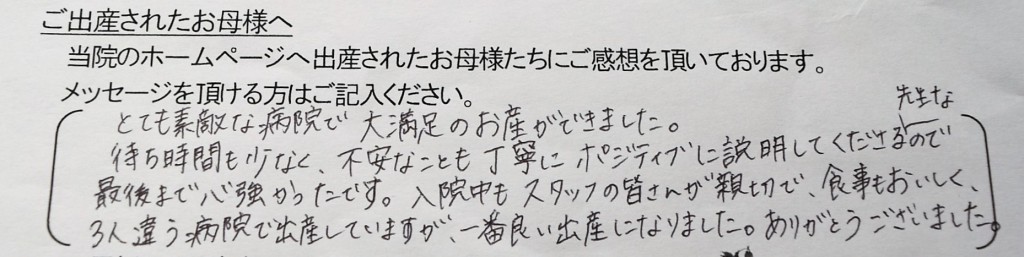 ご出産されたお母様へ
当院のホームページへ出産されたお母様たちにご感想を頂いております。
メッセージを頂ける方はご記入ください。
とても素敵な病院で大満足のお産ができました。
先生な
待ち時間も少なく、不安なことも丁寧にポジティブに説明してくださるので
最後まで心強かったです。入院中もスタッフの皆さんが親切で、食事もおいしく、
3人違う病院で出産していますが、一番良い出産になりました。ありがとうございました。